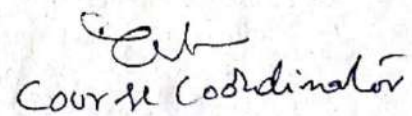 Course Coordinator